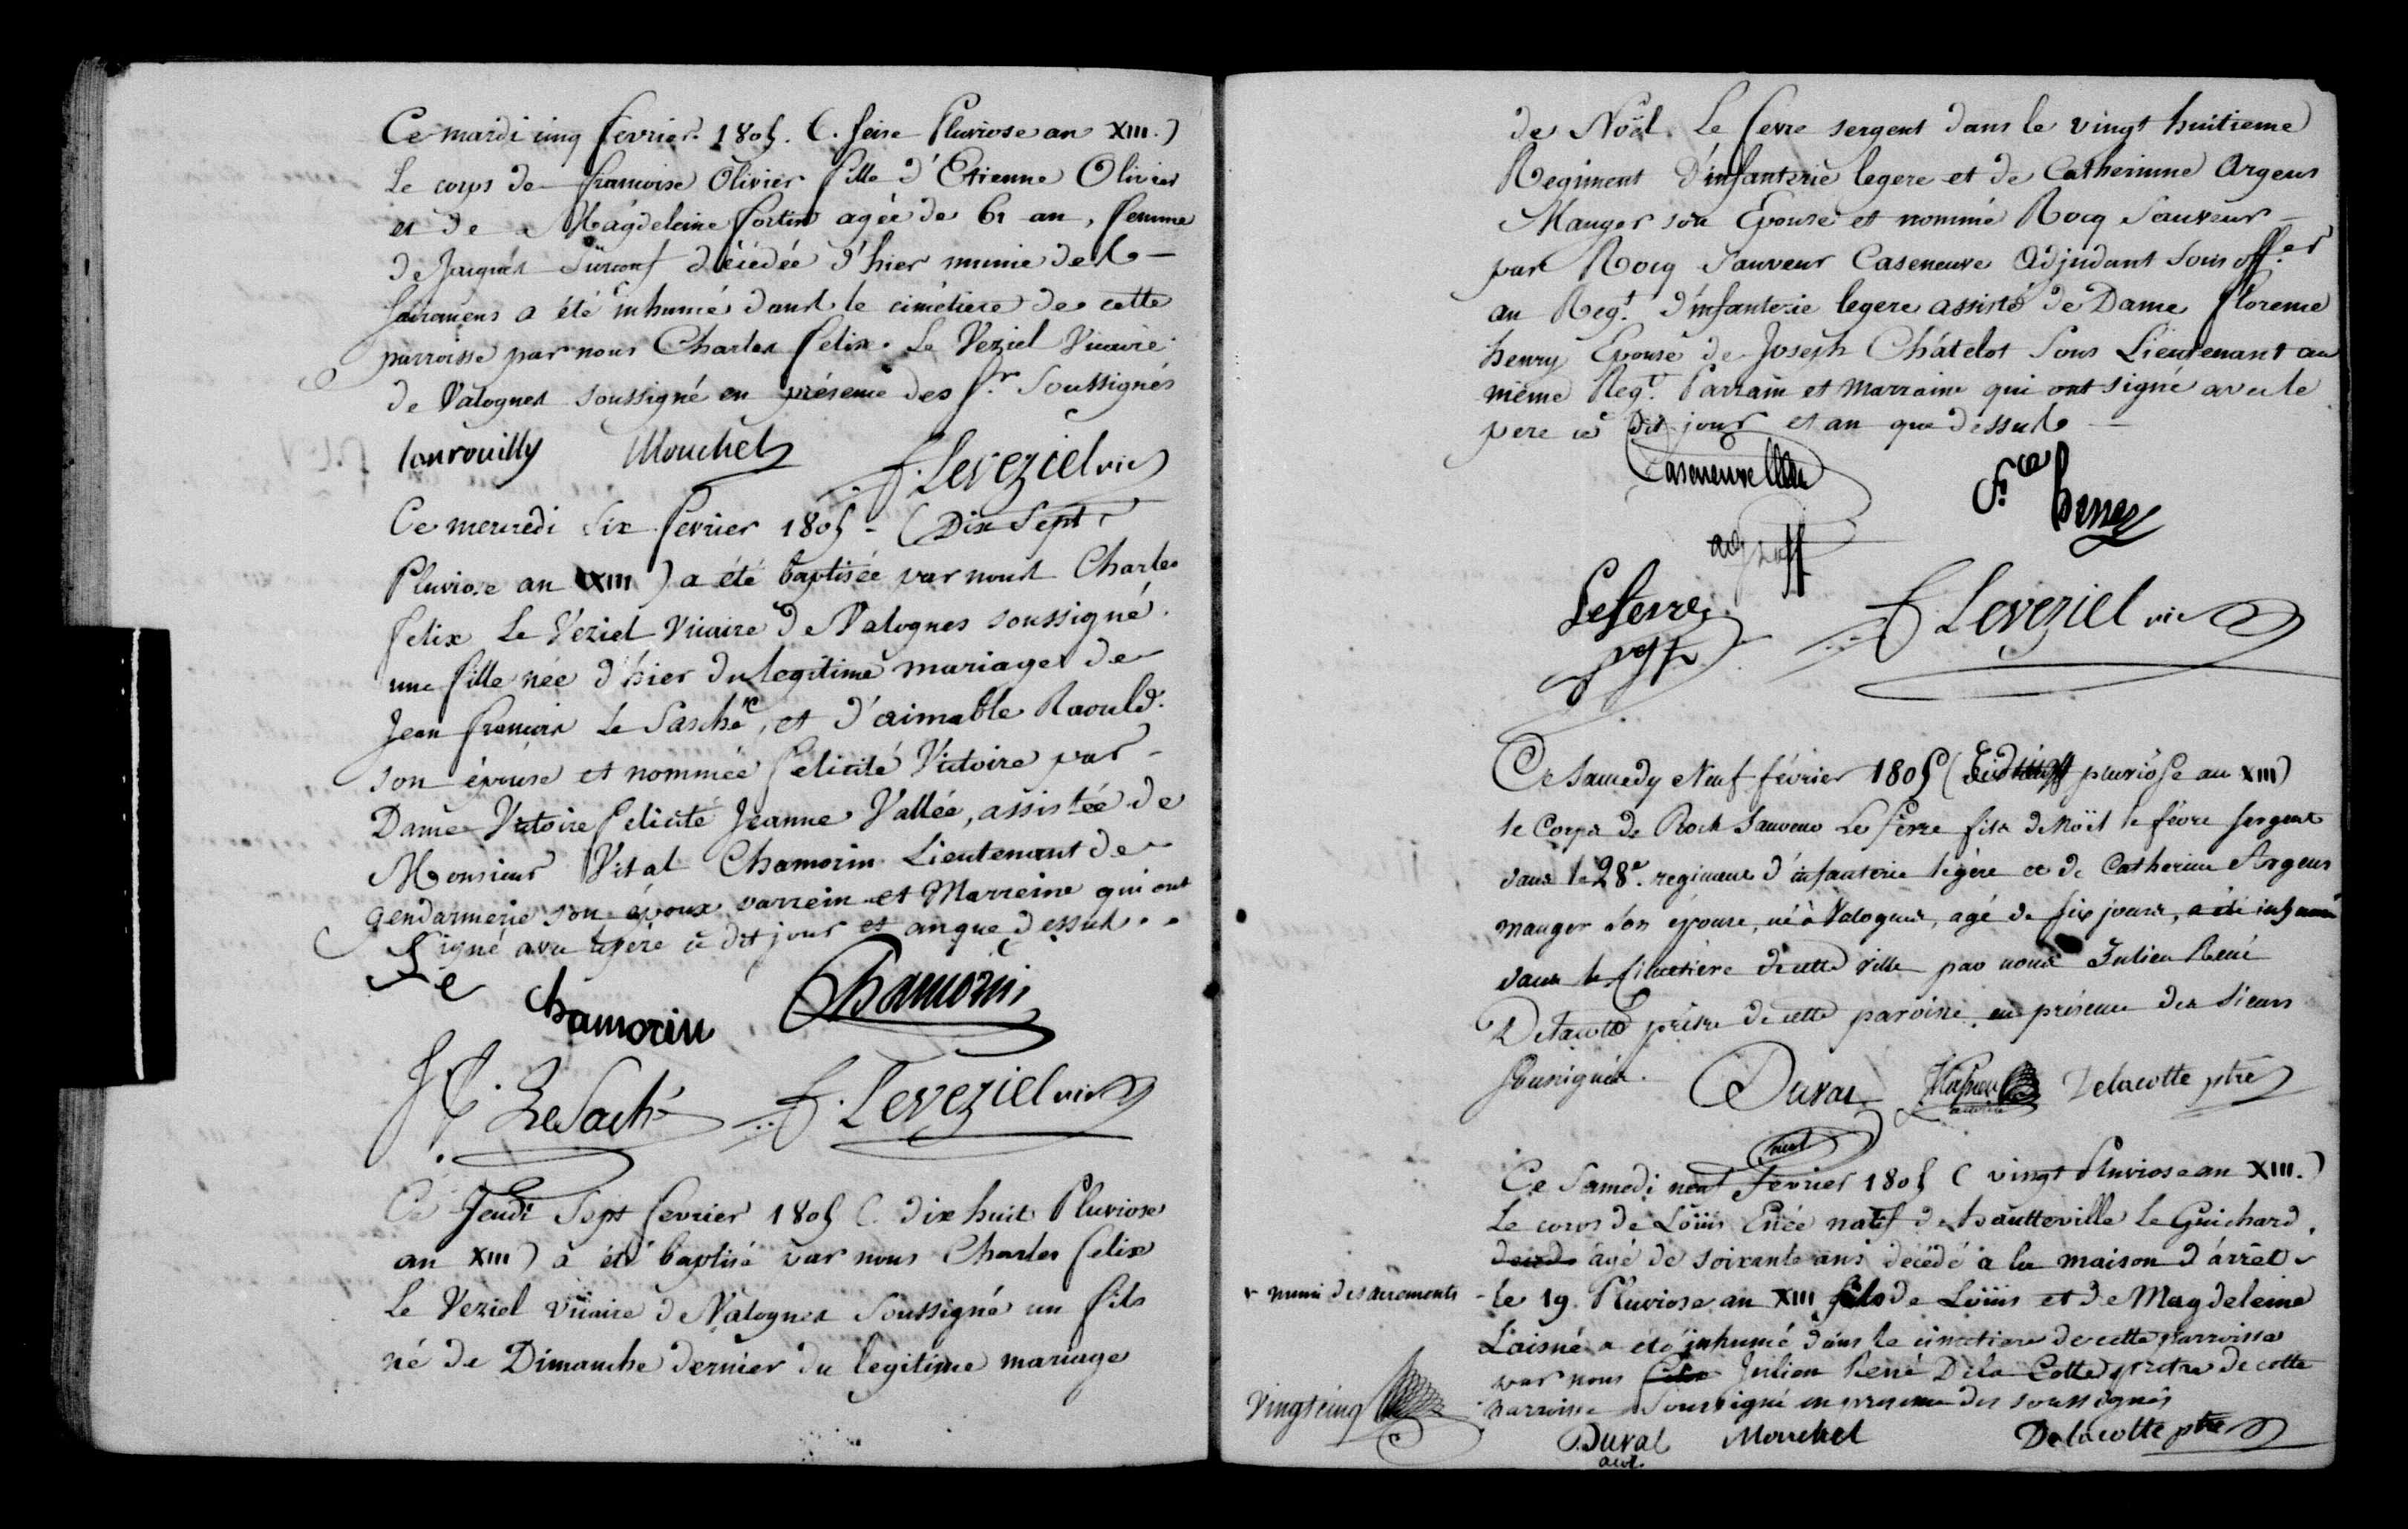 Ce mardi cinq fevrier 1805. (. seise Pluviose an XIII.)
Le corps de francoise Olivier fille d'Etienne Olivier
et de Magdeleine fortin agée de 61 an, femme
de Jacques décédée d'hier munie des
sacremens a été inhumé dans le cimétiere de cette
parroisse par nous Charles felix Le Veziel Vicaire
de Valognes soussigné en présence des Sr. Soussignés
Lonrouilly Mouchel f. Leveziel vic
Ce mercredi six fevrier 1805 - (Dix Sept
Pluviose an XIII) a été baptisée par nous Charles
felix Le Veziel Vicaire de Valognes soussigné
une fille née d'hier du legitime mariage de
Jean francois Le Saché, et d'aimable Raould
son épouse et nommée felicité Victoire par
Dame Victoire felicité Jeanne Vallée, assistée de
Monsieur Vital Chamorin Lieutenant de
gendarmerie son époux parrein et Marreine qui ont
Signé avec le père ce dit jour et an que dessus..
Chamorin Chamorin
J f. LeSaché f. Leveziel vic
Ce Jeudi Sept fevrier 1805 (. dix huit Pluviose
an XIII) a été baptisé par nous Charles felix
Le Veziel vicaire de Valognes soussigné un fils
né de Dimanche dernier du legitime mariage
de Noël Le fevre sergent dans le vingt huitieme
Regiment D'infanterie legere et de Catherinne Argeus
Mauger son Epouse et nommé Rocq Sauveur
par Rocq Sauveur Caseneuve Adjudant Sous offer
au Regt. d'infanterie legere assisté de Dame florence
henry Epouse de Joseph Châtelot Sous Lieutenant au
même Regt. Parrain et Marraine qui ont signé avec le
pere ce dit jour et an que dessus
Caseneuve
Fce henry
Lefevre
sgt
f. Leveziel vic
Ce Samedy Neuf février 1805 ( pluviôse an XIII)
le Corps de Roch Sauveur Le fevre fils de Noël le fèvre sergent
dans le 28e. regiment d'infanterie légère et de Catherine Argeus
mauger son épouse, né à Valognes, agé de six jours, a été inhumé
dans le cimetière de cette ville par nous Julien René
Delacotte prêtre de cette paroisse en présence des sieurs
soussignés. Duval Delacotte ptre
Ce Samedi neuf Fevrier 1805 ( vingt Pluviose an XIII.)
Le corps de Loüis Enée natif de hautteville Le Guichard,
agé de soixante ans décédé à la maison d'arrêt
+ muni des sacrements - le 19 Pluviose an XIII fils de Loüis et de Magdeleine
Laisné a été inhumé dans le cimetiere de cette parroisse
par nous Julien René De la Cotte pretre de cette
Vingtcinq
parroisse Soussigné en presence des soussignés
Duval Mouchel Delacotte ptre
acol.